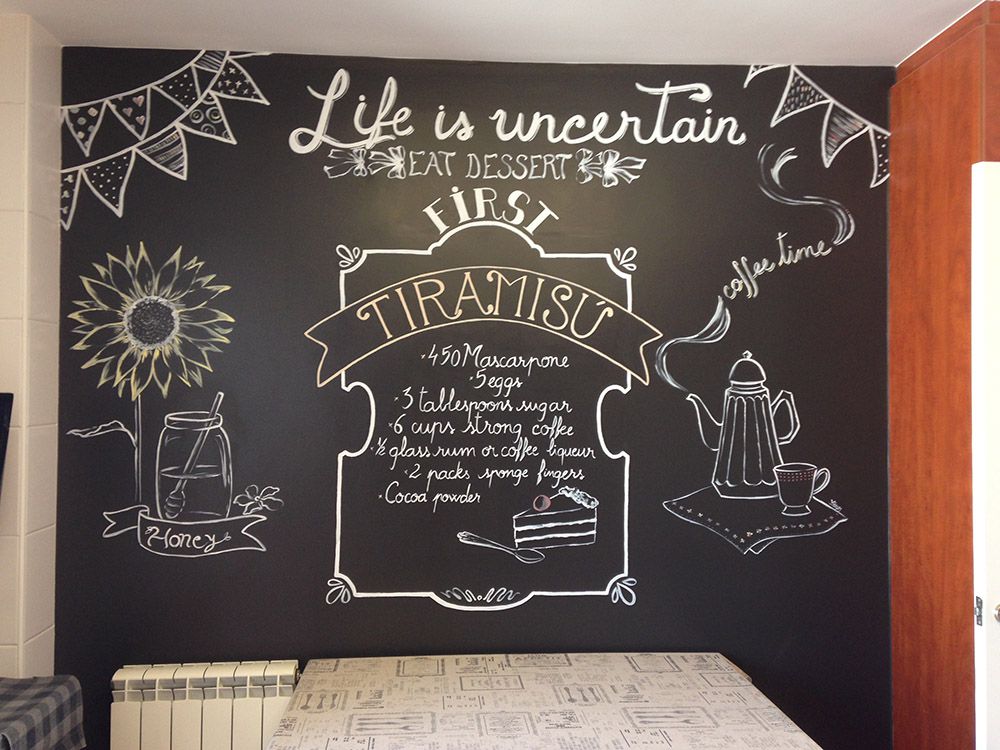 Life is uncertain
EAT DESSERT
FIRST
TIRAMISÚ
*450 Mascarpone
*5 eggs
*3 tablespoons sugar
*6 cups strong coffee
*½ glass rum or coffee liqueur
*2 packs sponge fingers
*Cocoa powder
coffee time
Honey